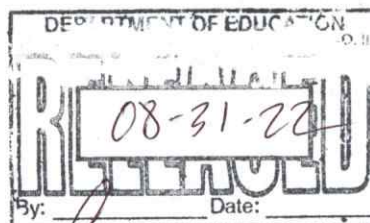 DEPARTMENT OF EDUCATION
RELEASED
08-31-22
By: Date: